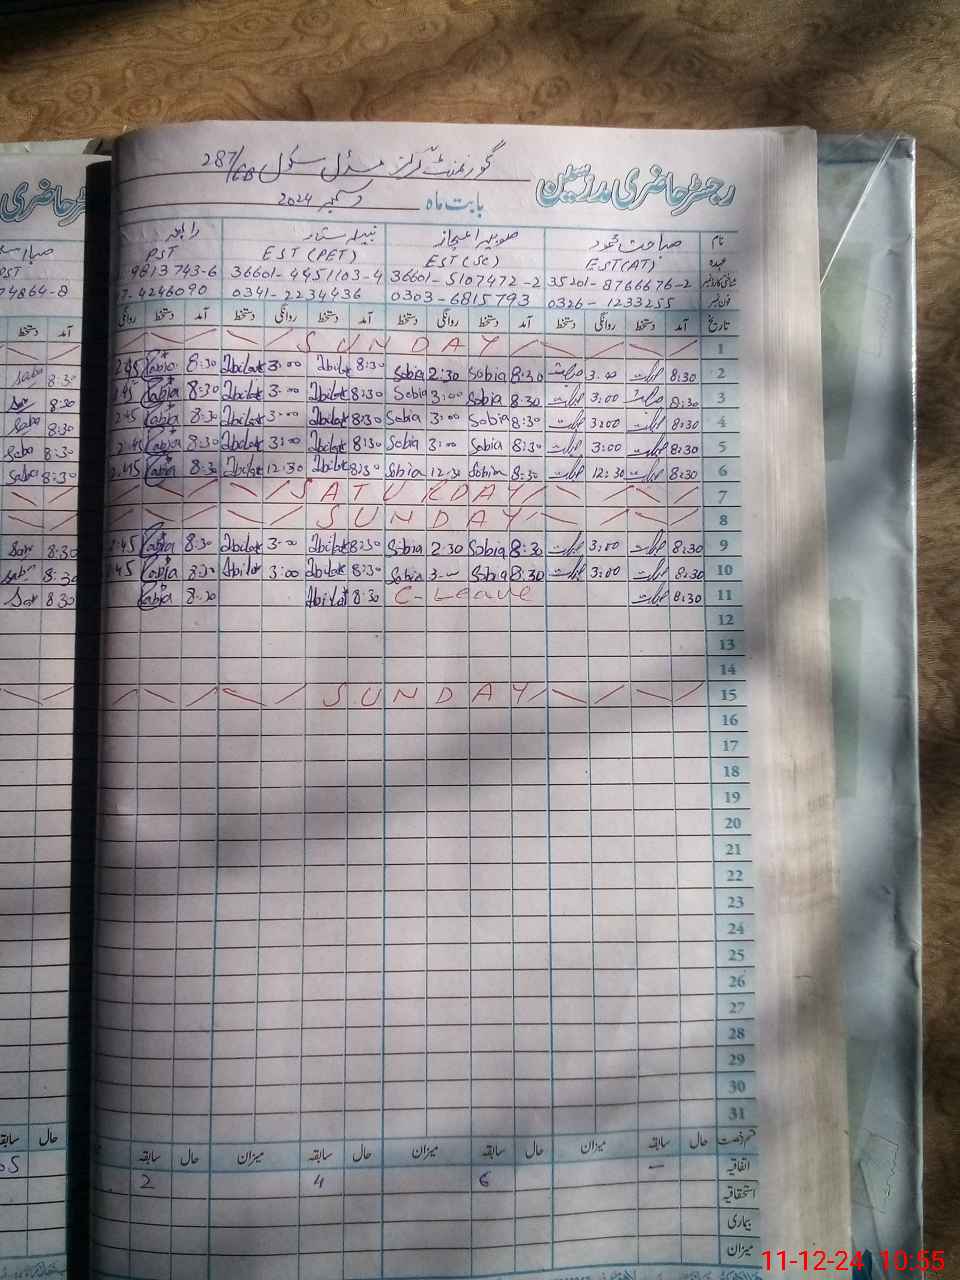 رجسٹر حاضری مدرسین
گورنمنٹ گرلز مڈل سکول 287/GB
بابت ماہ دسمبر 2024
نام صباحت صوبیہ اعجاز نبیلہ ستار رابعہ
عہدہ EST(AT) EST(Sc) EST (PET) PST
35201-8766676-2 36601-5107472-2 36601-4451103-4 9813743-6
فون نمبر 0326-1233255 0303-6815793 0341-2234436 7-4246090
تاریخ آمد دستخط روانگی دستخط آمد دستخط روانگی دستخط آمد دستخط روانگی دستخط آمد دستخط روانگی
1 SUNDAY
2 8:30 صباحت 3:00 صباحت 8:30 Sobia 2:30 Sobia 8:30 3:00 8:30 Rabia 2:45
3 8:30 صباحت 3:00 صباحت 8:30 Sobia 3:00 Sobia 8:30 3:00 8:30 Rabia 2:45
4 8:30 صباحت 3:00 صباحت 8:30 Sobia 3:00 Sobia 8:30 3:00 8:30 Rabia 2:45
5 8:30 صباحت 3:00 صباحت 8:30 Sobia 3:00 Sobia 8:30 3:00 8:30 Rabia 2:45
6 8:30 صباحت 12:30 صباحت 8:30 Sobia 12:30 Sobia 8:30 12:30 8:30 Rabia 2:45
7 SATURDAY
8 SUNDAY
9 8:30 صباحت 3:00 صباحت 8:30 Sobia 2:30 Sobia 8:30 3:00 8:30 Rabia 2:45
10 8:30 صباحت 3:00 صباحت 8:30 Sobia 3:00 Sobia 8:30 3:00 8:30 Rabia 2:45
11 8:30 صباحت C-Leave 8:30 8:30 Rabia
12
13
14
15 SUNDAY
16
17
18
19
20
21
22
23
24
25
26
27
28
29
30
31
قسم رخصت حال سابقہ میزان حال سابقہ میزان حال سابقہ میزان حال سابقہ
اتفاقیہ - 6 4 2
استحقاقیہ
بیماری
میزان
11-12-24 10:55